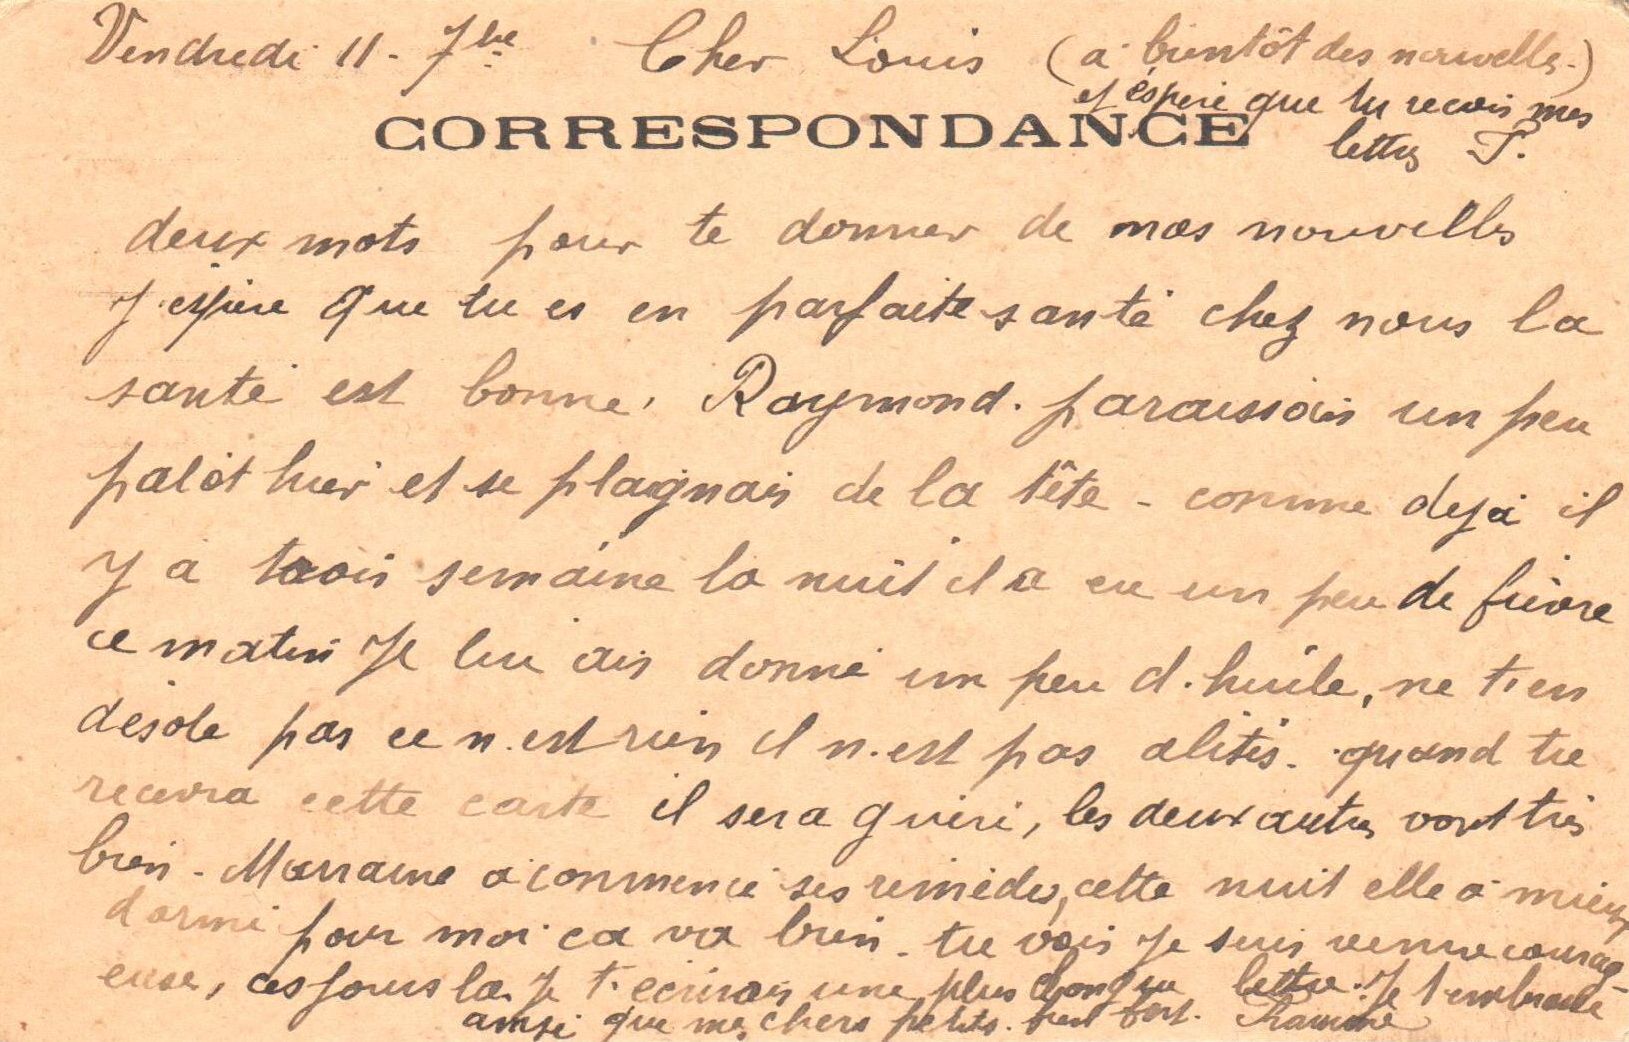 Vendredi 11 - 7bre Cher Louis (a bientôt des nouvelles.)
et éspere que tu recois mes
CORRESPONDANCE
lettres T.
deux mots pour te donner de mes nouvelles
J'espère que tu es en parfaite santé chez nous la
santé est bonne. Raymond. paraissais un peu
palôt hier et se plaignais de la tête - comme dejà il
y a trois semaine la nuit il a eu un peu de fièvre
ce matin Je lui ais donné un peu d.huile, ne t'en
désole pas ce n.est rien il n.est pas alités. quand tu
recevra cette carte il sera guéri, les deux autres vont très
bien - Marraine a commencé ses remèdes, cette nuit elle a mieux
dormi pour moi ca va bien - tu vois Je suis venue courag-
euse, ces jours la Je t'écrirais une plus longue lettre. Je t'embrasse
ainsi que mes chers petits. bien fort.